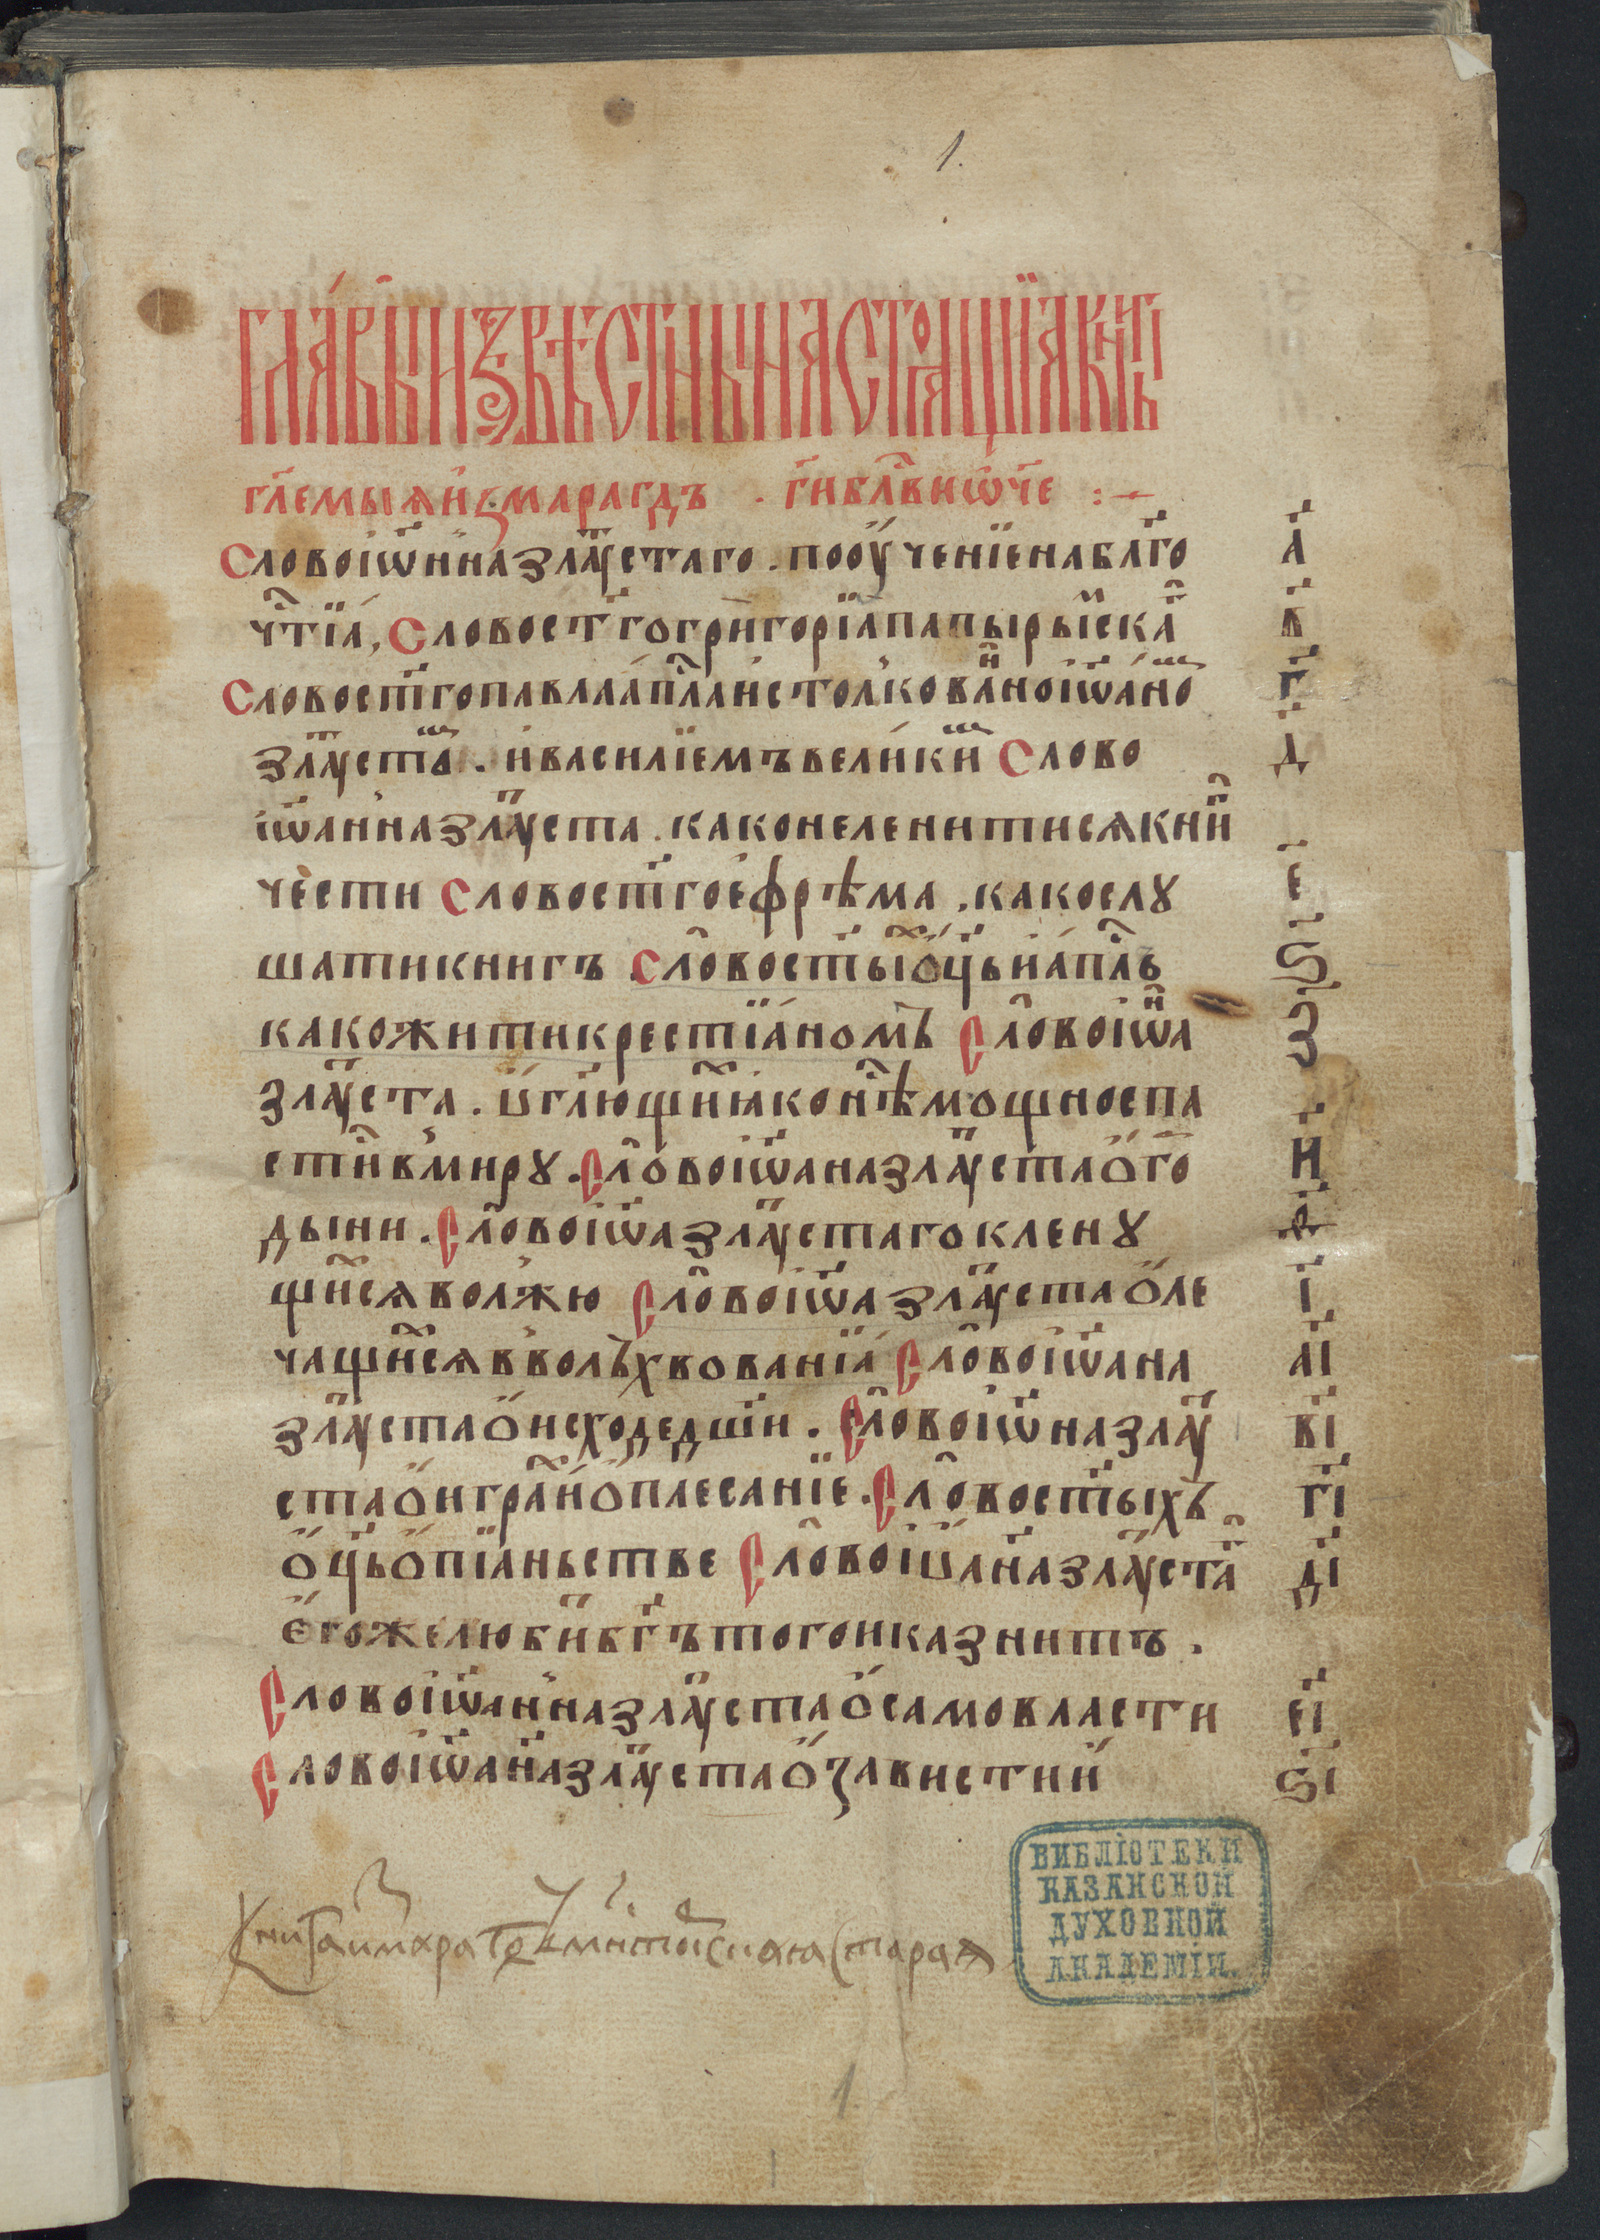 1.
ГЛАВЫ ИЗВѢСТНЫ НАСТОЯЩІЯ КНИГЫ
гл҃емыя измарагдъ . гн҃и бл҃ви ѿч҃е :~
Слово іѡ҃нна зла҃устаго . поѹченїе на бл҃го а҃
чт҃їа, Слово ст҃го григорїа папы рымска в҃
Слово ст҃го павла ап҃ла истолковано іѡ҃ано г҃
зла҃устѡ . и василїемъ великий Слово д҃
іѡ҃анна зла҃уста . како не ленитися книг
чести Слово ст҃го ефрѣма . како слꙋ е҃
шати книгъ Сло̑во ст҃ы ѻц҃ь и ап҃лъ ѕ҃
како жити крестїаномъ Сло̑во іѡ҃а з҃
зла҃уста . ѡ гл҃ющи яко нѣмощно спа
сти в миру . Сло̑во іѡ҃ана зла҃уста ѻ го и҃
дыни . Сло̑во іѡ҃а зла҃устаго кленꙋ ѳ҃
щися во лжю Сло̑во іѡ҃а зла҃уста ѻ ле і҃
чащися в волъхвованїа Сло̑во іѡ҃ана аі҃
зла҃уста ѻ исходедший . Сло̑во іѡ҃на зла҃у ві҃
ста ѻ игра и ѻ плесанїе . Сло̑во ст҃ыхъ гі҃
ѻц҃ь ѻ пїаньстве Сло̑во іѡ҃ана зла҃уста ді҃
егоже люби б҃гъ того и казнитъ .
Слово іѡ҃анна зла҃уста ѻ самовласти еі҃
Слово іѡ҃ана зла҃уста ѻ завистий ѕі҃
Книга измарагд старая
БИБЛІОТЕКИ
КАЗАНСКОЙ
ДУХОВНОЙ
АКАДЕМІИ.
1